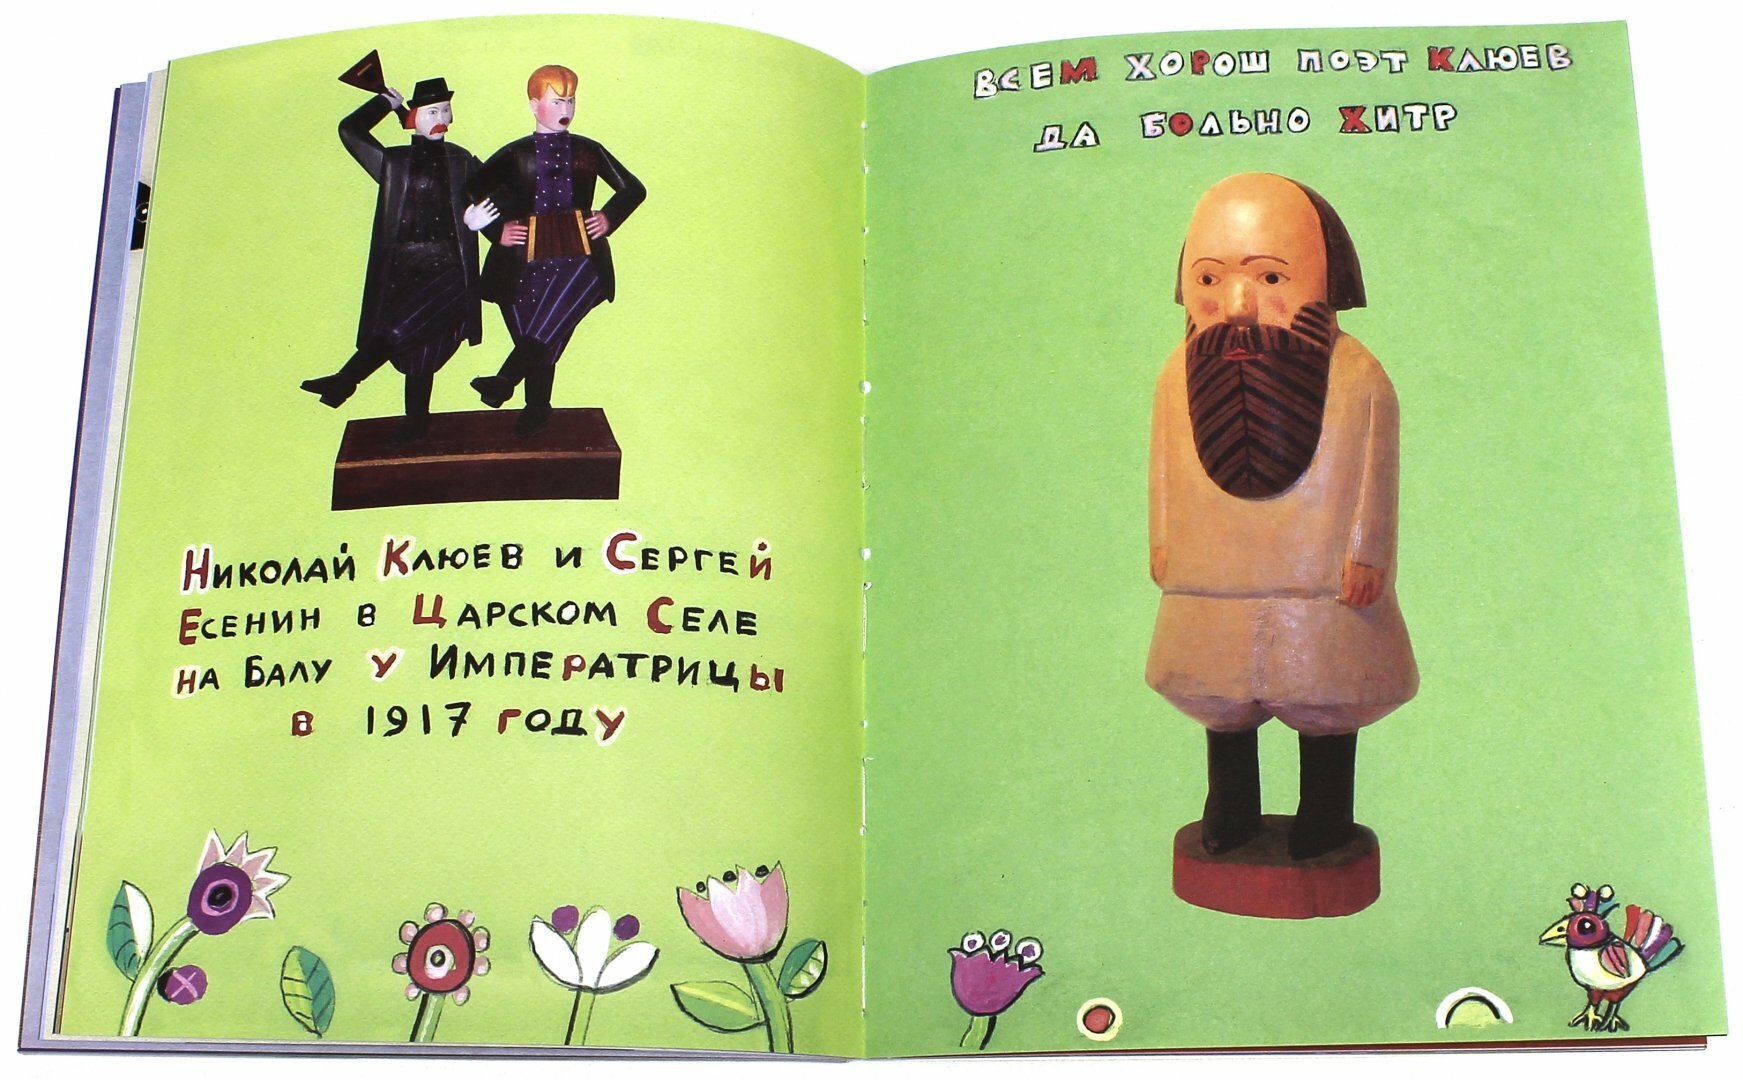 Николай Клюев и Сергей
Есенин в Царском Селе
на балу у Императрицы
в 1917 году
ВСЕМ ХОРОШ ПОЭТ КЛЮЕВ
ДА БОЛЬНО ХИТР